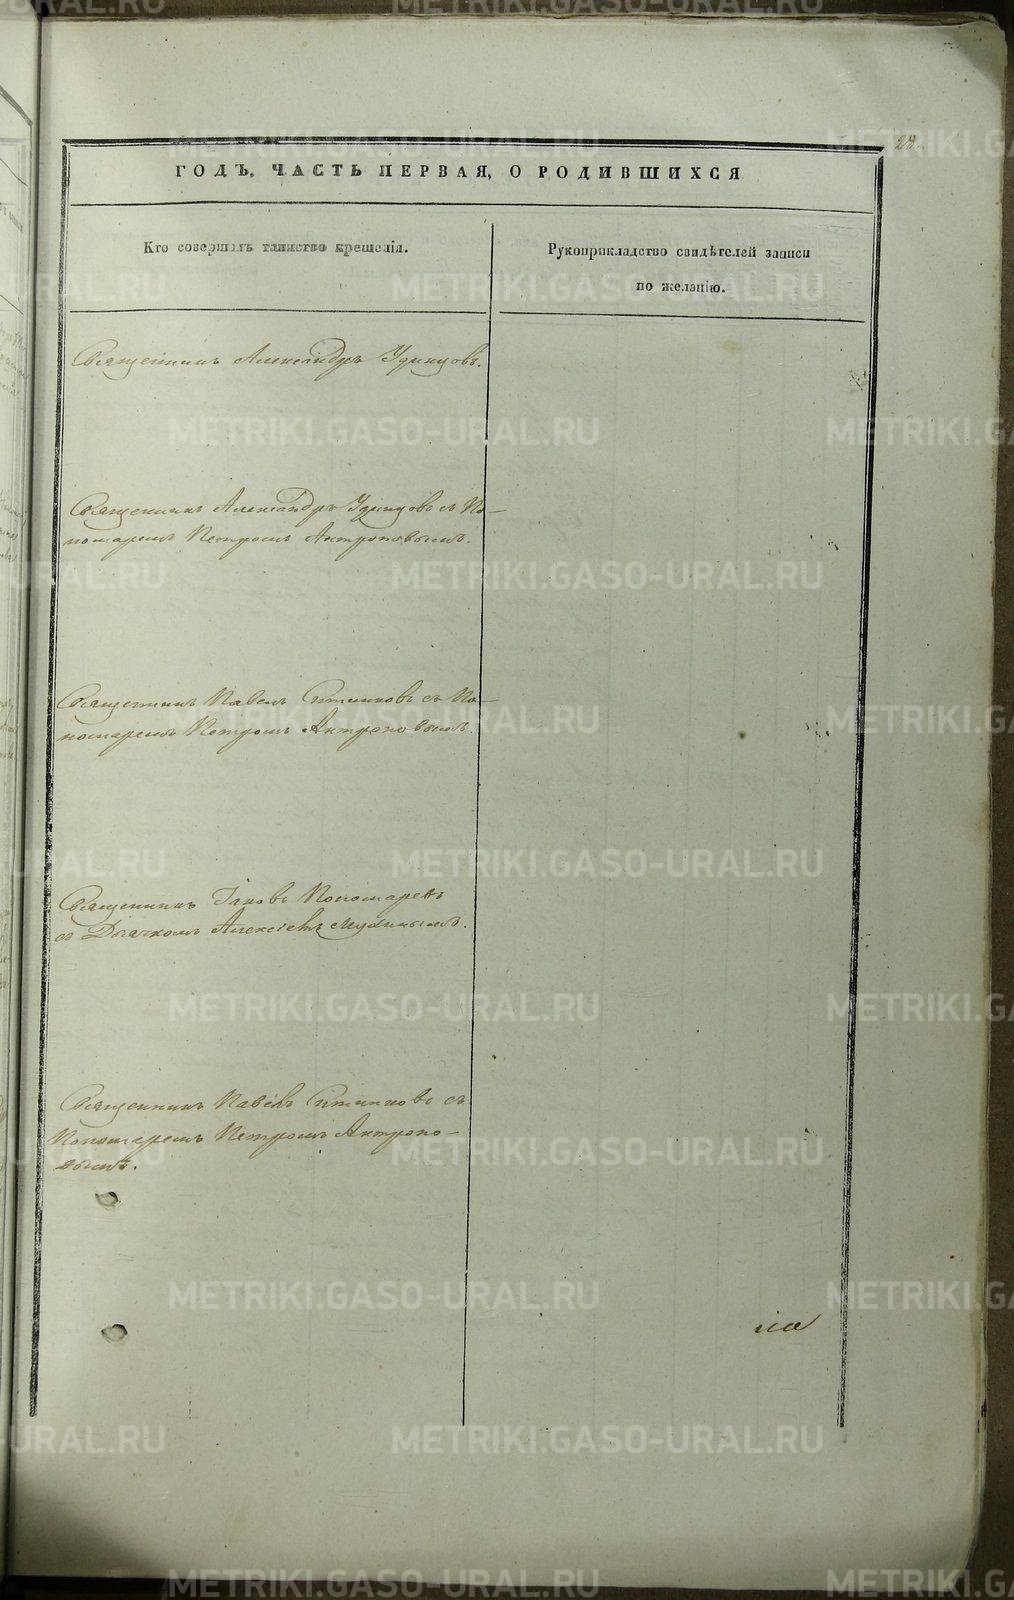 23.
ГОДЪ, ЧАСТЬ ПЕРВАЯ, О РОДИВШИХСЯ
Кто совершалъ таинство крещенія.
Рукоприкладство свидѣтелей записи
по желанію.
Священникъ Александръ Удинцовъ.
Священникъ Александръ Удинцовъ съ По-
номаремъ Петромъ Антроповымъ.
Священникъ Павелъ Ситниковъ съ По-
номаремъ Петромъ Антроповымъ.
Священникъ Іаковъ Пономаревъ
съ Дьячкомъ Алексіемъ Мухинымъ.
Священникъ Павелъ Ситниковъ съ
Пономаремъ Петромъ Антропо-
вымъ.
METRIKI.GASO-URAL.RU